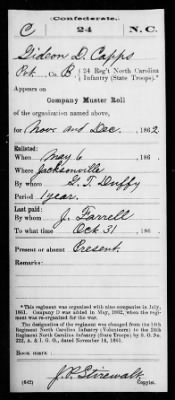 Confederate.
C 24 N.C.
Gideon D. Capps
Pvt., Co. B, 24 Reg't North Carolina
Infantry (State Troops).*
Appears on
Company Muster Roll
of the organization named above,
for Nov and Dec, 1862
Enlisted:
When May 6, 186 .
Where Jacksonville
By whom G. T. Duffy
Period 1 year.
Last paid:
By whom J. Farrell
To what time Oct 31, 186 .
Present or absent Present.
Remarks:
*This regiment was organized with nine companies in July,
1861. Company D was added in May, 1862, when the regi-
ment was re-organized for the war.
The designation of the regiment was changed from the 14th
Regiment North Carolina Infantry (Volunteers) to the 24th
Regiment North Carolina Infantry (State Troops) by S. O. No.
222, A. & I. G. O., dated November 14, 1861.
Book mark:
(642) J. P. Stirewalt
Copyist.